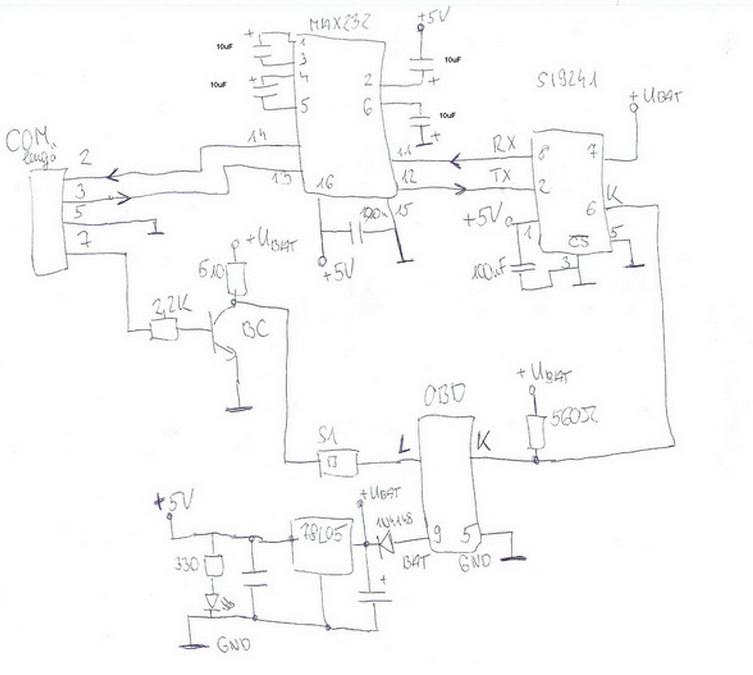 MAX232
+5V
10uF
1
3
4
5
10uF
2
6
10uF
10uF
SI9241
+UBAT
COM
2
14
11
RX
8
7
3
13
16
12
TX
2
6
K
5
100n
15
+5V
1
CS
5
7
+5V
100nF
3
+UBAT
510
2,2K
BC
OBD
+UBAT
560Ω
S1
L
K
+5V
+UBAT
78L05
1N4148
9
5
330
BAT
GND
+
GND